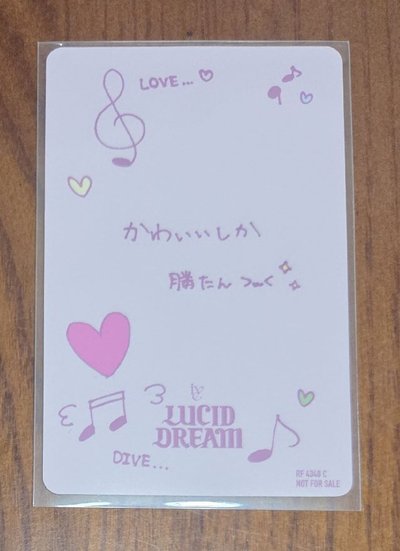 LOVE...
かわいいしか
勝たんっ
LUCID
DREAM
DIVE...
RF 4040 C
NOT FOR SALE